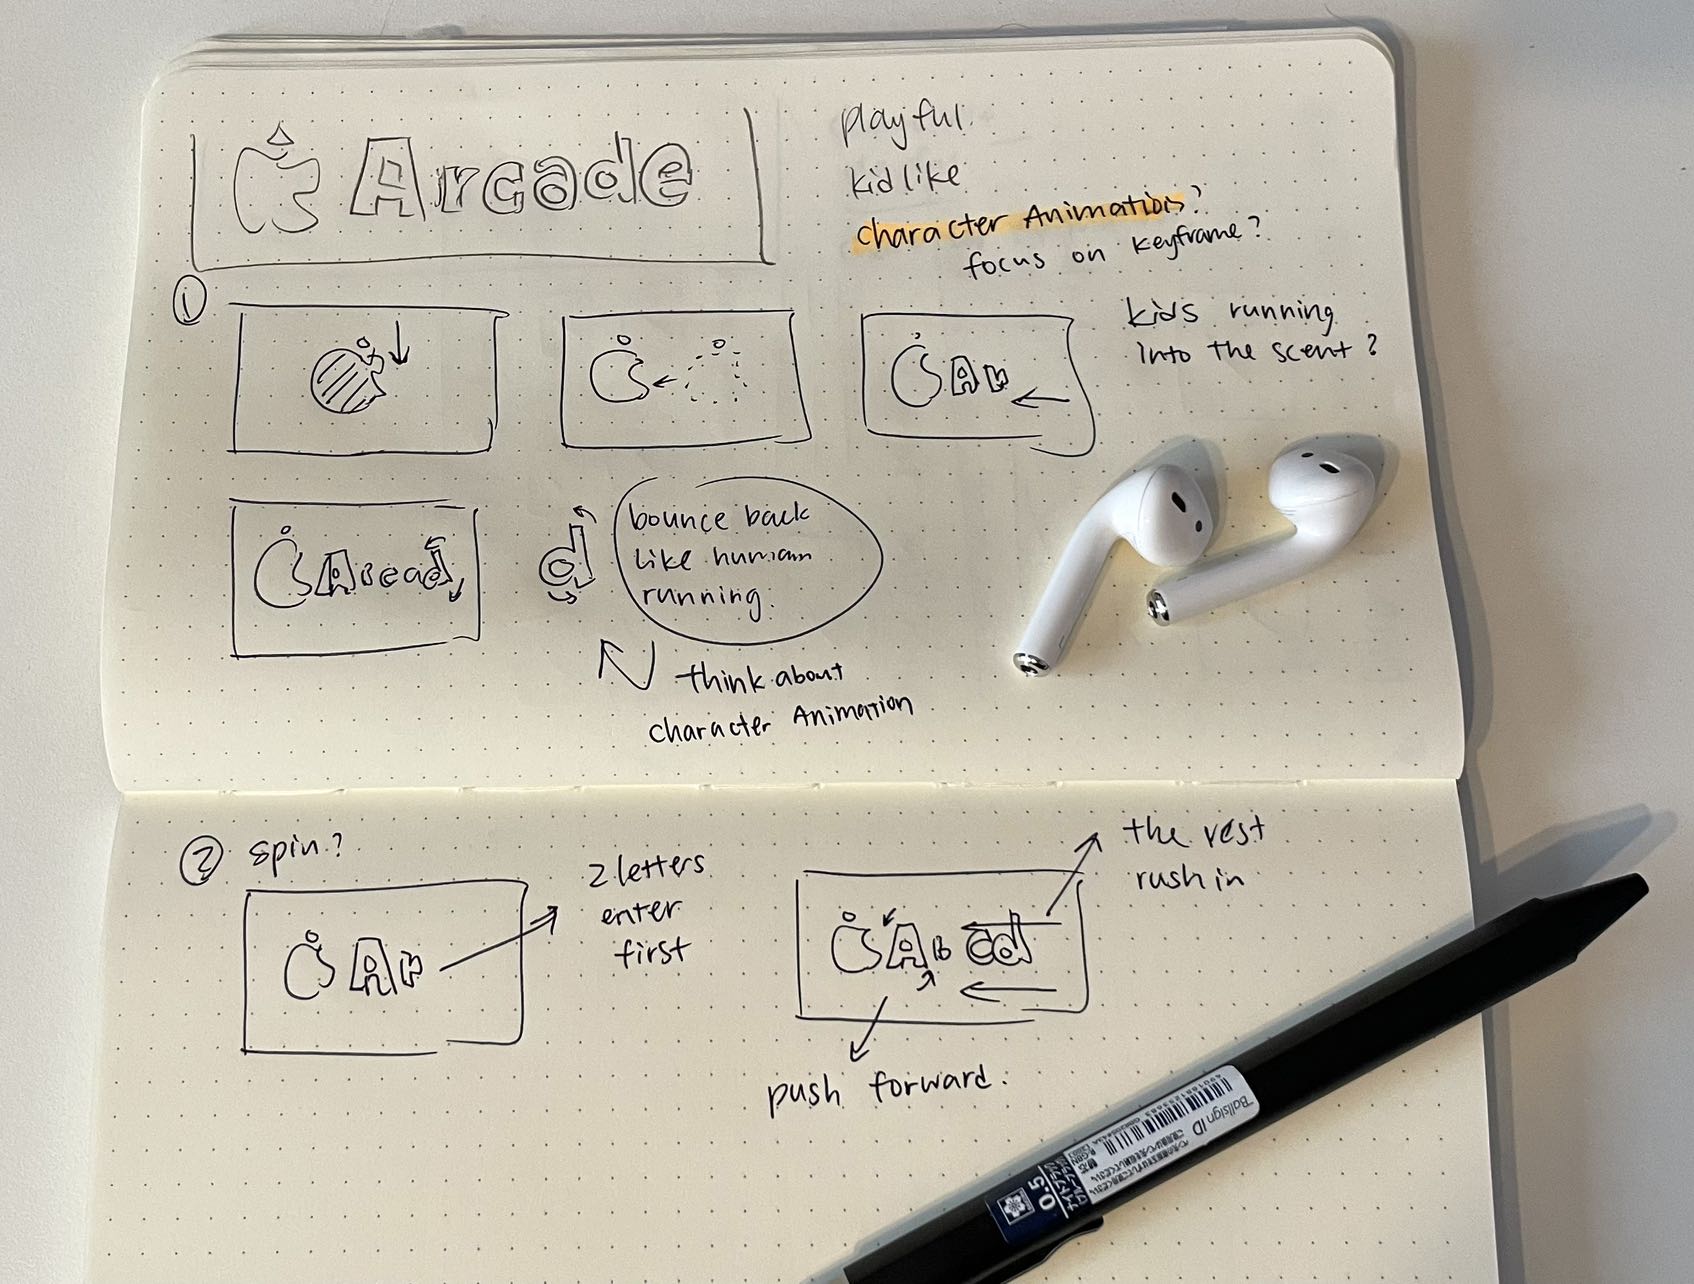 Arcade
playful
kidlike
character Animation?
focus on keyframe?
①
Ar
kids running
into the scent?
Arcad
d
bounce back
like human
running.
think about
character Animation
② spin?
Ar
2 letters
enter
first
Ar cd
the rest
rush in
push forward.
Ballsign iD
0.5